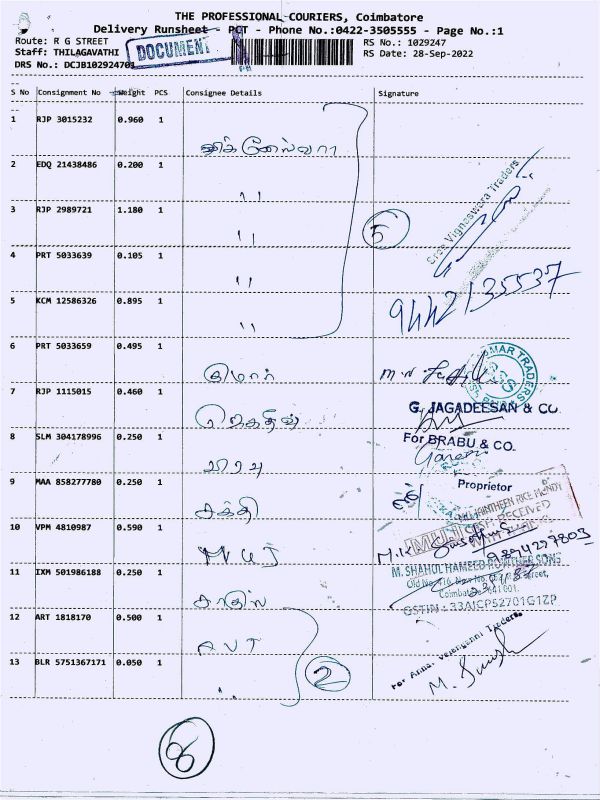 THE PROFESSIONAL COURIERS, Coimbatore
Delivery Runsheet - PCT - Phone No.:0422-3505555 - Page No.:1
Route: R G STREET
RS No.: 1029247
Staff: THILAGAVATHI
DOCUMENT
RS Date: 28-Sep-2022
DRS No.: DCJB102924701
S No Consignment No Weight PCS Consignee Details Signature
1 RJP 3015232 0.960 1
விக்னேஸ்வரா
2 EDQ 21438486 0.200 1
"
Sree Vignaswera Traders
3 RJP 2989721 1.180 1
"
5
4 PRT 5033639 0.105 1
"
9442135537
5 KCM 12586326 0.895 1
"
6 PRT 5033659 0.495 1
குமார்
MAR TRADERS
7 RJP 1115015 0.460 1
ஜெகதீஸ்
G. JAGADEESAN & CO.
8 SLM 304178996 0.250 1
பிரபு
For BRABU & CO.
9 MAA 858277780 0.250 1
Proprietor
சக்தி
10 VPM 4810987 0.590 1
RICE MUNDY
CASH RECEIVED
9894257803
11 IXM 501986188 0.250 1
M. SHAHUL HAMEED ROWTHER SONS
Street,
Coimbatore - 641 001.
GSTIN : 33AICPS2701G1ZP
12 ART 1818170 0.500 1
AVT
For Annai Velanganni Traders
13 BLR 5751367171 0.050 1
"
2
8